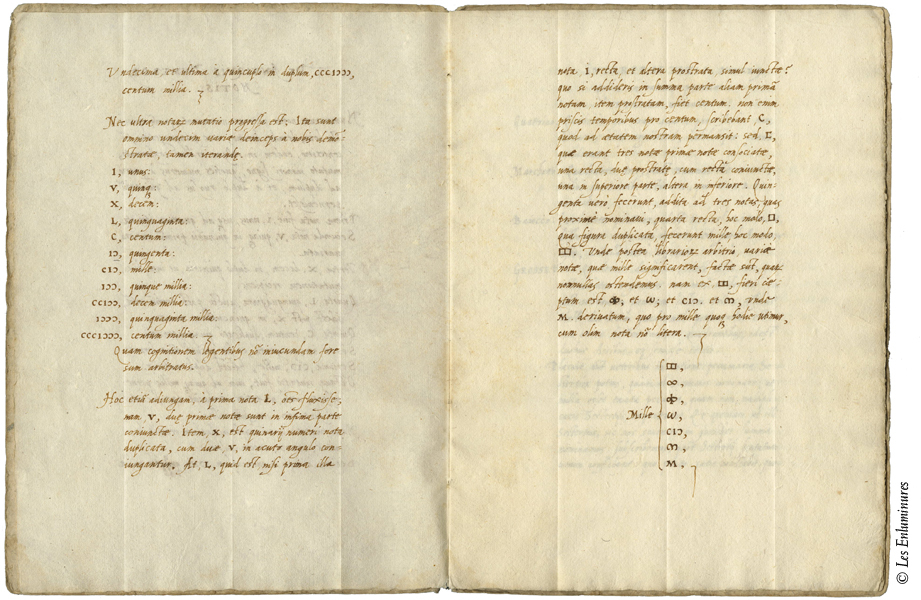 Vndecima, et ultima à quincuplo in duplum, CCCIↃↃↃ,
centum millia.
Nec ultra notarum mutatio progressa est. Ita sunt
omnino undecim uariæ deinceps à nobis demon-
stratæ, tamen iterandæ.
I, unus:
V, quinq3:
X, decem:
L, quinquaginta:
C, centum:
IↃ, quingenta:
CIↃ, mille:
IↃↃ, quinque millia:
CCIↃↃ, decem millia:
IↃↃↃ, quinquaginta millia:
CCCIↃↃↃ, centum millia.
Quam cognitionem legentibus nõ iniucundam fore
sum arbitratus.
Hoc etiã adiungam, à prima nota L, oẽs fluxisse;
nam V, duæ primæ notæ sunt in infima parte
coniunctæ. Item, X, est quinarij numeri nota
duplicata, cum duæ, V, in acuto angulo con-
iungantur. At, L, quid est, nisi prima illa
nota I, recta, et altera prostrata, simul iunctæ?
quo si addideris in summa parte aliam primã
notam item prostratam, fiet centum. non enim
priscis temporibus pro centum, scribebant C,
quod ad ætatem nostram permansit: sed, [,
quæ erant tres notæ primæ notæ consociatæ,
una recta, duæ prostratæ, cum recta coniunctæ,
una in superiore parte, altera in inferiore. Quin-
genta uero fecerunt, addita ad tres notas, quas
proxime nominaui, quarta recta, hoc modo, □,
Qua figura duplicata, fecerunt mille, hoc modo,
◫. Vnde postea librariorum arbitrio, uariæ
notæ, quæ mille significarent, factæ sũt, quarum
nonnullas ostendemus. nam ex ◫, fieri cœ-
ptum est ↀ, et ω, et CIↃ. et ო, unde
M. deriuatum, quo pro mille quoq3 hodie utimur,
cum olim nota nõ litera.
Mille
◫,
∞,
ↀ,
ω,
CIↃ,
ო,
M.
© Les Enluminures